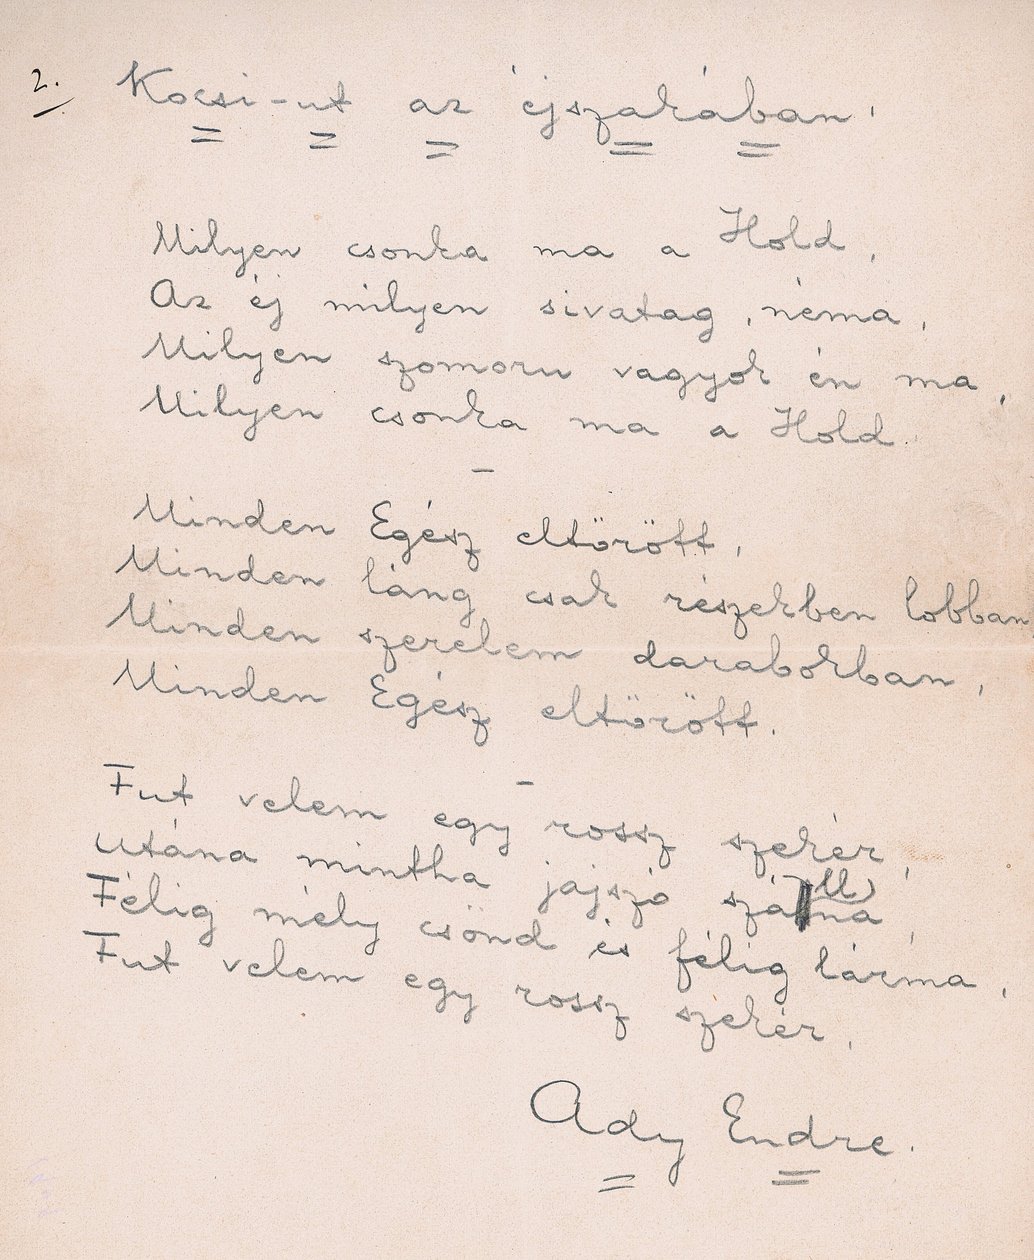 2. Kocsi-ut az éjszakában.
Milyen csonka ma a Hold,
Az éj milyen sivatag, néma,
Milyen szomoru vagyok én ma,
Milyen csonka ma a Hold.
–
Minden Egész eltörött,
Minden láng csak részekben lobban
Minden szerelem darabokban,
Minden Egész eltörött.
–
Fut velem egy rossz szekér,
Utána mintha jajszó szállna,
Félig mély csönd és félig lárma,
Fut velem egy rossz szekér.
Ady Endre.